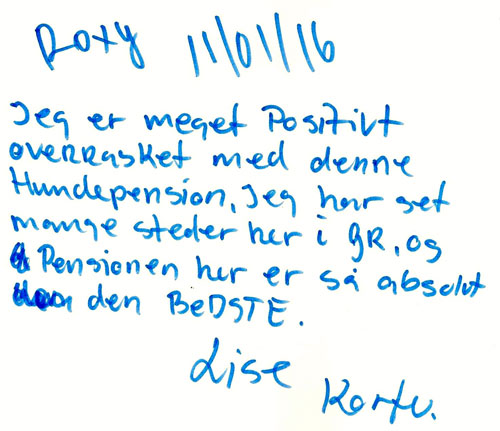 Roxy 11/01/16
Jeg er meget Positivt
overrasket med denne
Hundepension, Jeg har set
mange steder her i GR, og
Pensionen her er så absolut
den BeDSTE.
Lise
Korfu.